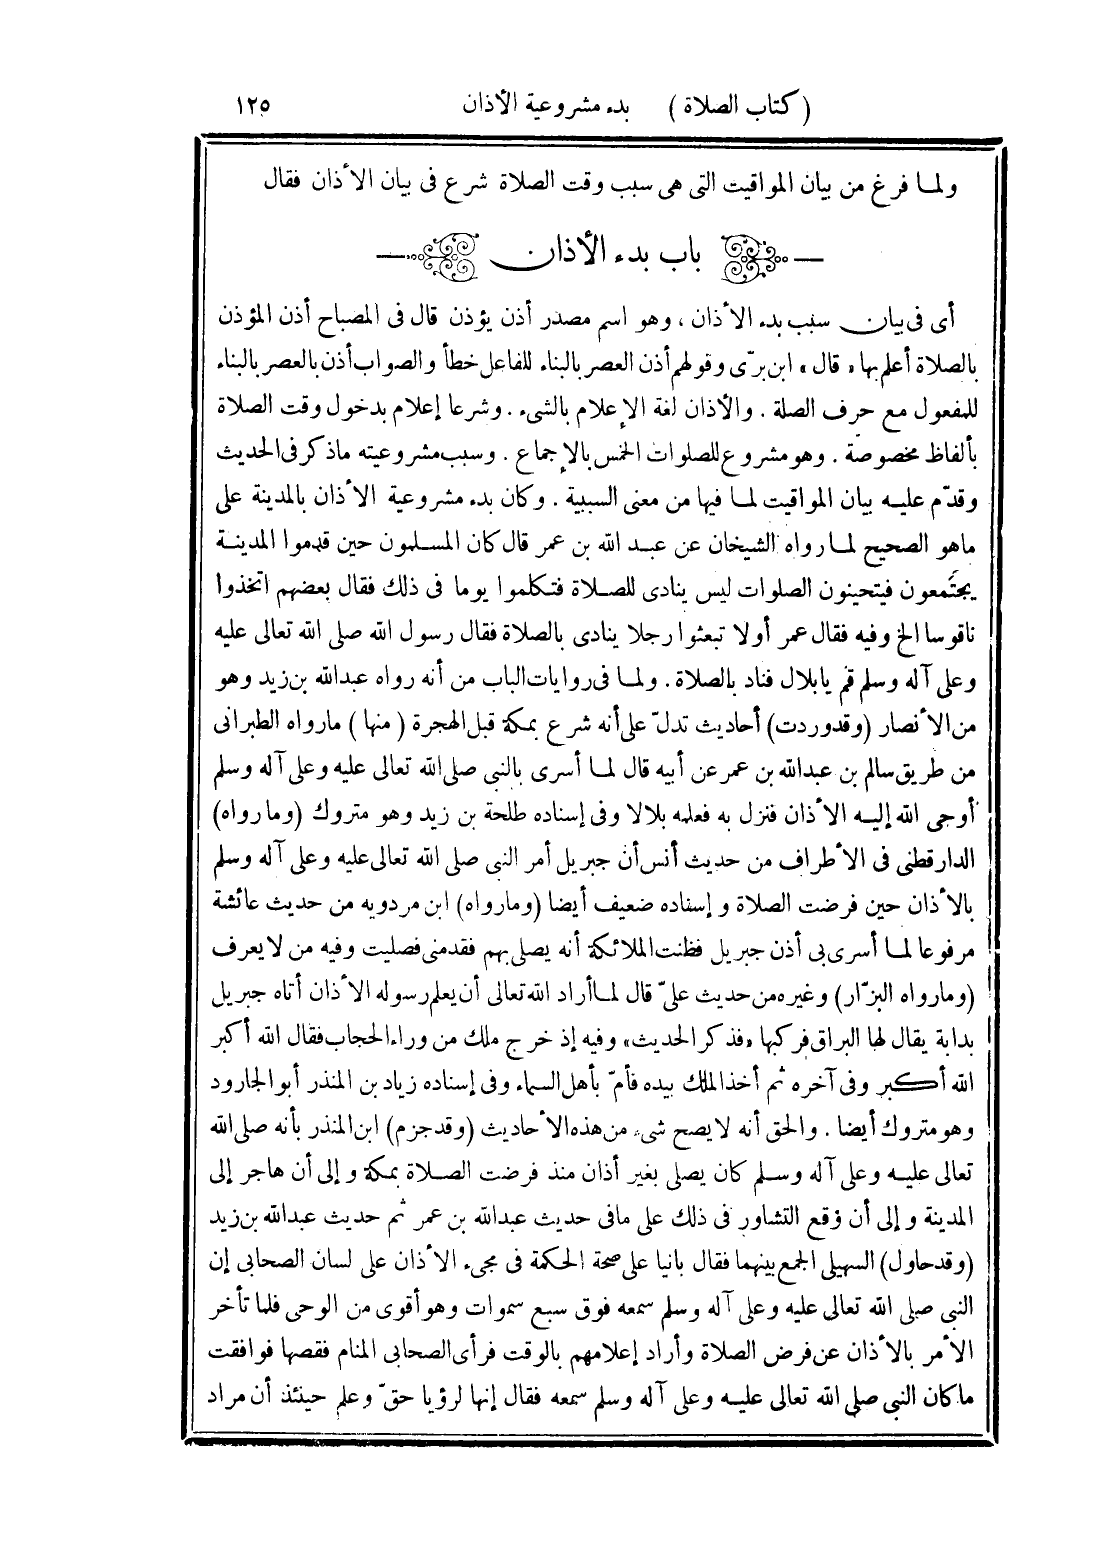 (كتاب الصلاة) بدء مشروعية الأذان ١٢٥
ولما فرغ من بيان المواقيت التى هى سبب وقت الصلاة شرع فى بيان الأذان فقال
باب بدء الأذان
أى فى بيان سبب بدء الأذان، وهو اسم مصدر أذن يؤذن قال فى المصباح أذن المؤذن
بالصلاة أعلم بها «قال» ابن برّى وقولهم أذن العصر بالبناء للفاعل خطأ والصواب أذن بالعصر بالبناء
للمفعول مع حرف الصلة. والأذان لغة الإعلام بالشىء. وشرعا إعلام بدخول وقت الصلاة
بألفاظ مخصوصة. وهو مشروع للصلوات الخمس بالإجماع. وسبب مشروعيته ماذكر فى الحديث
وقدّم عليه بيان المواقيت لما فيها من معنى السببية. وكان بدء مشروعية الأذان بالمدينة على
ماهو الصحيح لما رواه الشيخان عن عبد الله بن عمر قال كان المسلمون حين قدموا المدينة
يجتمعون فيتحينون الصلوات ليس ينادى للصلاة فتكلموا يوما فى ذلك فقال بعضهم اتخذوا
ناقوسا الخ وفيه فقال عمر أولا تبعثوا رجلا ينادى بالصلاة فقال رسول الله صلى الله تعالى عليه
وعلى آله وسلم قم يابلال فناد بالصلاة. ولما فى روايات الباب من أنه رواه عبدالله بن زيد وهو
من الأنصار (وقدوردت) أحاديث تدلّ على أنه شرع بمكة قبل الهجرة (منها) مارواه الطبرانى
من طريق سالم بن عبدالله بن عمر عن أبيه قال لما أسرى بالنبى صلى الله تعالى عليه وعلى آله وسلم
أوحى الله إليه الأذان فنزل به فعلمه بلالا وفى إسناده طلحة بن زيد وهو متروك (ومارواه)
الدارقطنى فى الأطراف من حديث أنس أن جبريل أمر النبى صلى الله تعالى عليه وعلى آله وسلم
بالأذان حين فرضت الصلاة وإسناده ضعيف أيضا (ومارواه) ابن مردويه من حديث عائشة
مرفوعا لما أسرى بى أذن جبريل فظنت الملائكة أنه يصلى بهم فقدمنى فصليت وفيه من لايعرف
(ومارواه البزّار) وغيره من حديث علىّ قال لما أراد الله تعالى أن يعلم رسوله الأذان أتاه جبريل
بدابة يقال لها البراق فركبها «فذكر الحديث» وفيه إذ خرج ملك من وراء الحجاب فقال الله أكبر
الله أكبر وفى آخره ثم أخذ الملك بيده فأمّ بأهل السماء وفى إسناده زياد بن المنذر أبو الجارود
وهو متروك أيضا. والحق أنه لايصح شىء من هذه الأحاديث (وقدجزم) ابن المنذر بأنه صلى الله
تعالى عليه وعلى آله وسلم كان يصلى بغير أذان منذ فرضت الصلاة بمكة وإلى أن هاجر إلى
المدينة وإلى أن وقع التشاور فى ذلك على مافى حديث عبدالله بن عمر ثم حديث عبدالله بن زيد
(وقدحاول) السهيلى الجمع بينهما فقال بانيا على صحة الحكمة فى مجىء الأذان على لسان الصحابى إن
النبى صلى الله تعالى عليه وعلى آله وسلم سمعه فوق سبع سموات وهو أقوى من الوحى فلما تأخر
الأمر بالأذان عن فرض الصلاة وأراد إعلامهم بالوقت فرأى الصحابى المنام فقصها فوافقت
ما كان النبى صلى الله تعالى عليه وعلى آله وسلم سمعه فقال إنها لرؤيا حقّ وعلم حينئذ أن مراد